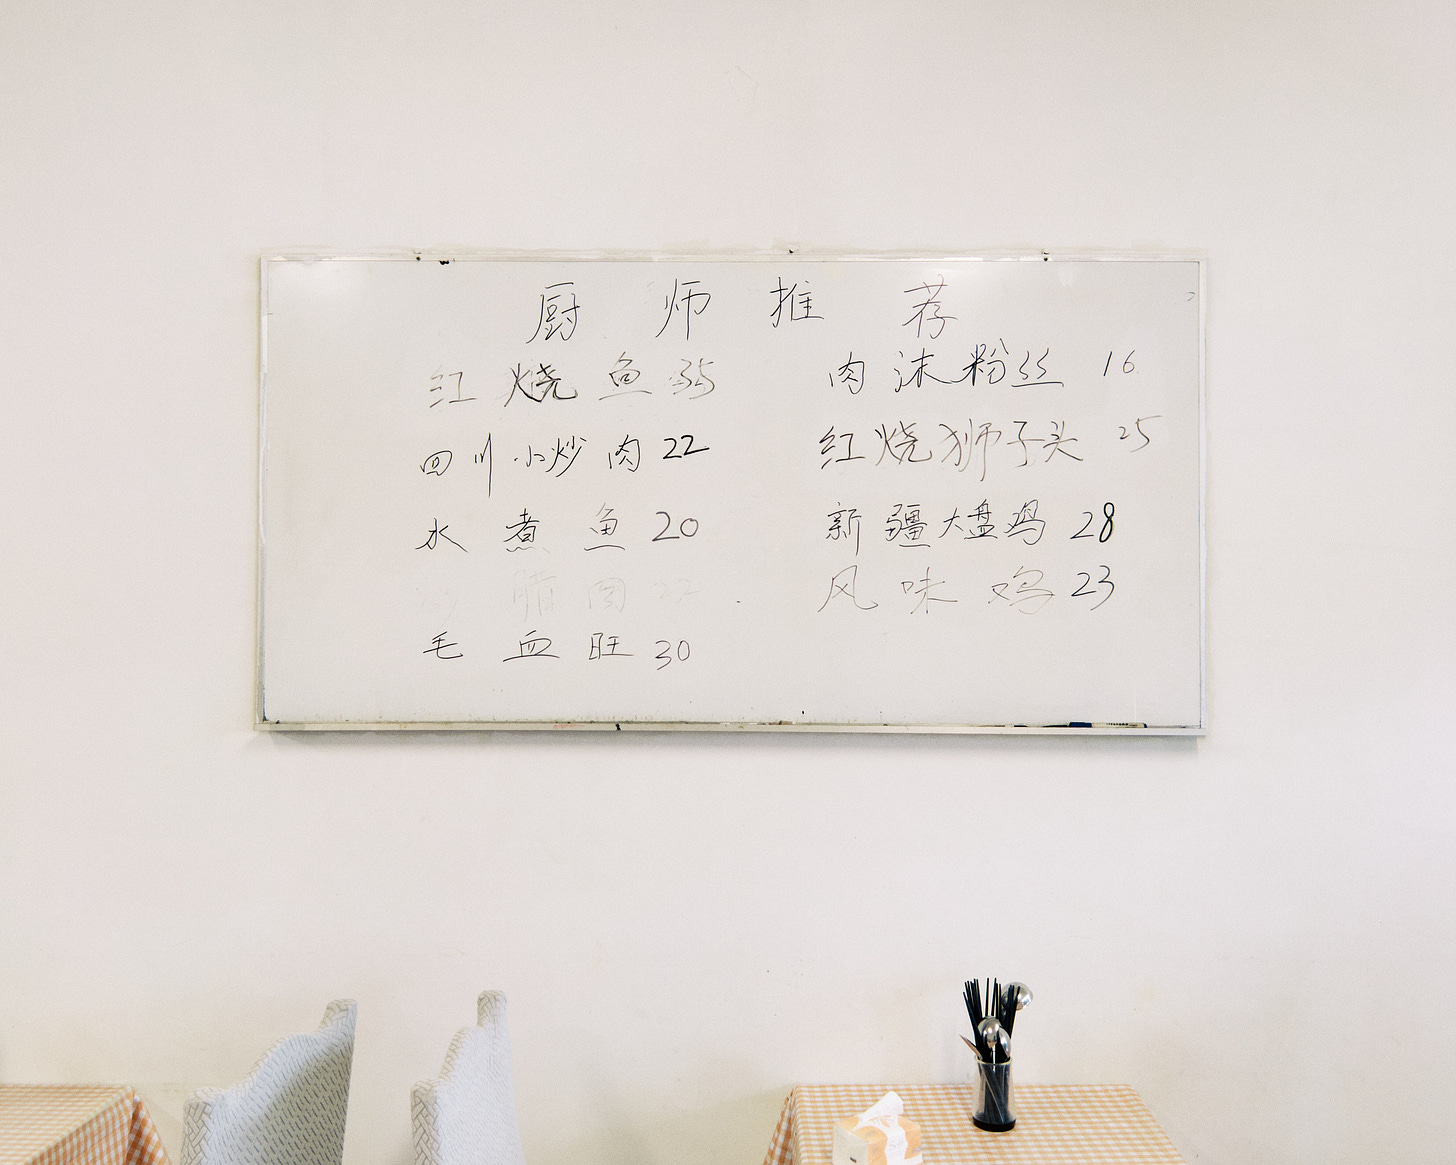 厨师推荐
红烧鱼 35
四川小炒肉 22
水煮鱼 20
腊肉 22
毛血旺 30
肉沫粉丝 16
红烧狮子头 25
新疆大盘鸡 28
风味鸡 23